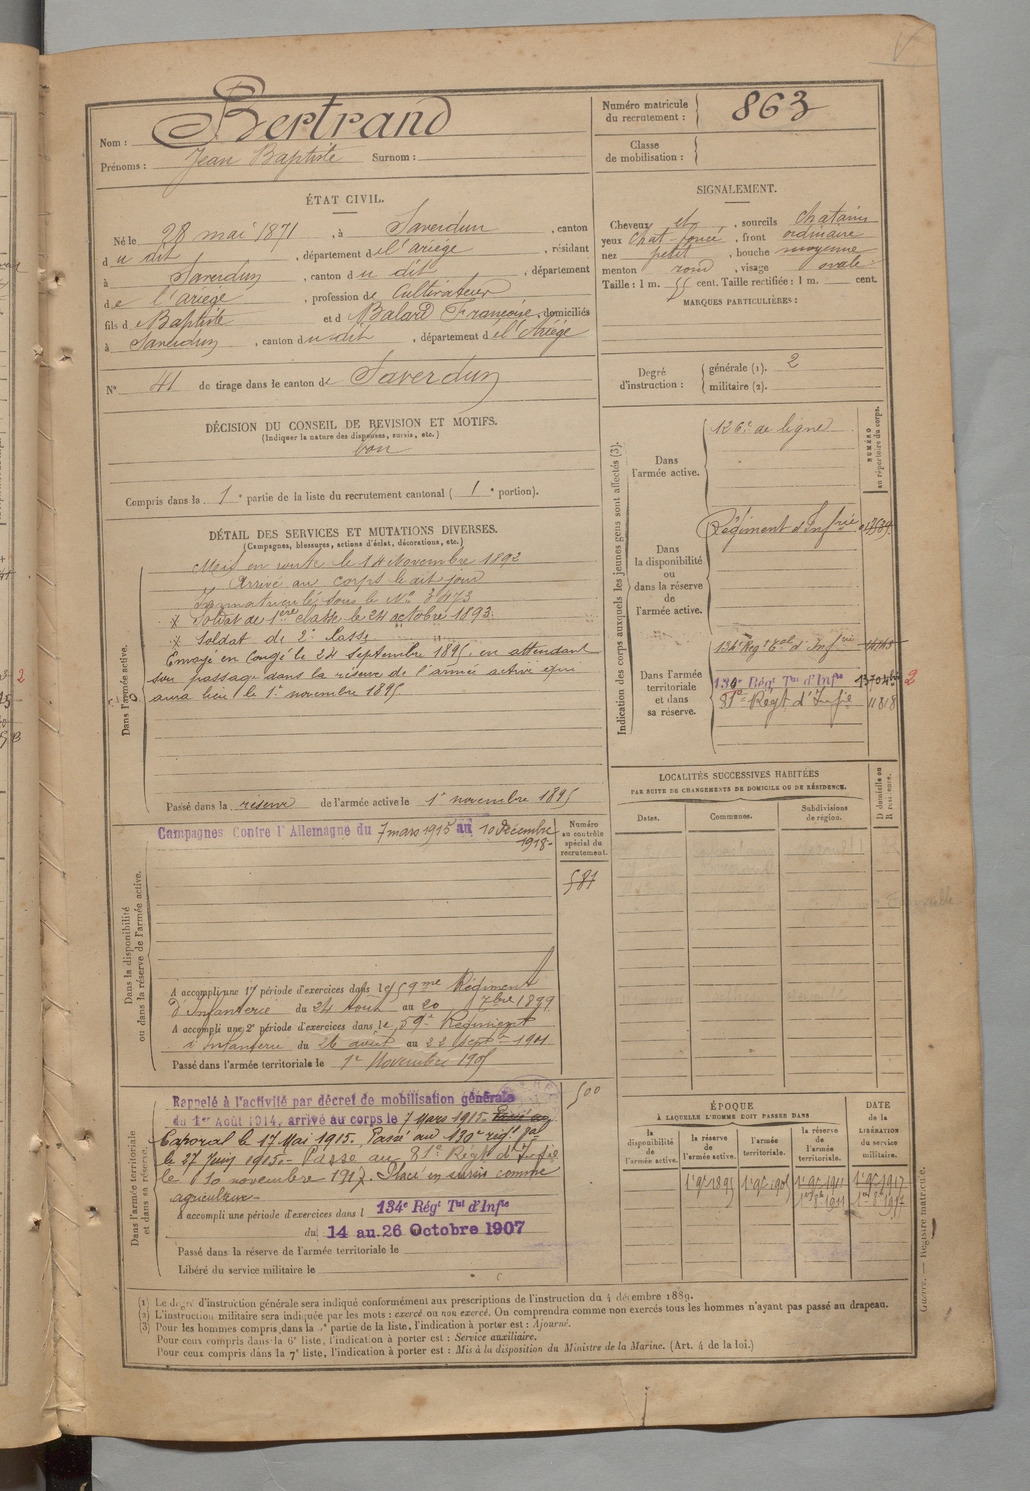 Nom : Bertrand
Prénoms : Jean Baptiste Surnom :
Numéro matricule
du recrutement : 863
Classe
de mobilisation :
ÉTAT CIVIL.
Né le 28 mai 1871, à Saverdun, canton
du dit, département de l'ariège, résidant
à Saverdun, canton du dit, département
de l'ariège, profession de Cultivateur
fils de Baptiste et de Balard Françoise, domiciliés
à Saverdun, canton du dit, département de l'Ariège
N° 41 de tirage dans le canton de Saverdun
SIGNALEMENT.
Cheveux et, sourcils chatains
yeux chat-foncé, front ordinaire
nez petit, bouche moyenne
menton rond, visage ovale
Taille : 1 m. 55 cent. Taille rectifiée : 1 m. cent.
MARQUES PARTICULIÈRES :
Degré
d'instruction :
générale (1). 2
militaire (2).
DÉCISION DU CONSEIL DE REVISION ET MOTIFS.
(Indiquer la nature des dispenses, sursis, etc.)
bon
Compris dans la 1e partie de la liste du recrutement cantonal (1e portion).
DÉTAIL DES SERVICES ET MUTATIONS DIVERSES.
(Campagnes, blessures, actions d'éclat, décorations, etc.)
Dans l'armée active.
Mis en route le 14 Novembre 1892
Arrivé au corps le dit jour
Immatriculé sous le N° 3473
X Soldat de 1ère classe le 24 octobre 1893.
X Soldat de 2e Classe " "
Envoyé en Congé le 24 septembre 1895 en attendant
son passage dans la réserve de l'armée active qui
aura lieu le 1er novembre 1895
Passé dans la réserve de l'armée active le 1er novembre 1895
Indication des corps auxquels les jeunes gens sont affectés (3).
NUMÉRO
au répertoire du corps.
Dans
l'armée active.
126e de ligne
Dans
la disponibilité
ou
dans la réserve
de
l'armée active.
Régiment d'Infrie
Dans l'armée
territoriale
et dans
sa réserve.
134e Régt Tal d'Infrie
134e Régt Tal d'Infie
81e Régt d'Infie 11818
2
Dans la disponibilité
ou dans la réserve de l'armée active.
Campagnes Contre l'Allemagne du 7 mars 1915 au 10 Décembre
1918-
Numéro
au contrôle
spécial du
recrutement.
581
A accompli une 1e période d'exercices dans le 59me Régiment
d'Infanterie du 24 Août au 20 7bre 1899
A accompli une 2e période d'exercices dans le 59e Régiment
d'infanterie du 26 août au 22 Sept 1901
Passé dans l'armée territoriale le 1er Novembre 1905
LOCALITÉS SUCCESSIVES HABITÉES
PAR SUITE DE CHANGEMENTS DE DOMICILE OU DE RÉSIDENCE.
Dates.
Communes.
Subdivisions
de région.
D domicile ou
R résidence.
Dans l'armée territoriale
et dans sa réserve.
Rappelé à l'activité par décret de mobilisation générale
du 1er Août 1914, arrivé au corps le 7 Mars 1915. Passé au
Caporal le 17 Mai 1915. Passé au 130e régt Tal
le 27 Juin 1915. Passe au 81e Régt d'Infie
le 10 novembre 1917. Placé en sursis comme
agriculteur
500
A accompli une période d'exercices dans l 134e Régt Tal d'Infie
du 14 au 26 Octobre 1907
Passé dans la réserve de l'armée territoriale le
Libéré du service militaire le
ÉPOQUE
À LAQUELLE L'HOMME DOIT PASSER DANS
DATE
de la
LIBÉRATION
du service
militaire.
la
disponibilité
de
l'armée active.
la réserve
de
l'armée active.
l'armée
territoriale.
la réserve
de
l'armée
territoriale.
1er 9bre 1895 1er 9bre 1905 1er 9bre 1911 1er 9bre 1917
1er 8b 1911 1er 8b 1917
(1) Le degré d'instruction générale sera indiqué conformément aux prescriptions de l'instruction du 4 décembre 1889.
(2) L'instruction militaire sera indiquée par les mots : exercé ou non exercé. On comprendra comme non exercés tous les hommes n'ayant pas passé au drapeau.
(3) Pour les hommes compris dans la 5e partie de la liste, l'indication à porter est : Ajourné.
Pour ceux compris dans la 6e liste, l'indication à porter est : Service auxiliaire.
Pour ceux compris dans la 7e liste, l'indication à porter est : Mis à la disposition du Ministre de la Marine. (Art. 4 de la loi.)
Guerre. — Registre matricule.